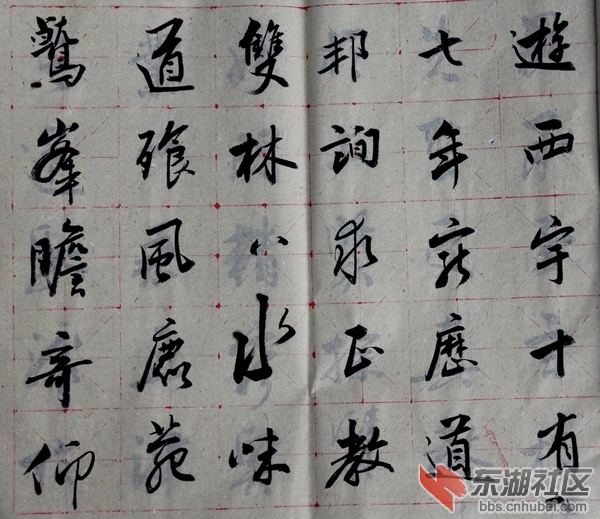 遊西宇十有
七年窮歷道
邦詢求正教
雙林八水味
道飡風鹿菀
鷲峯瞻奇仰
东湖社区
bbs.cnhubei.com